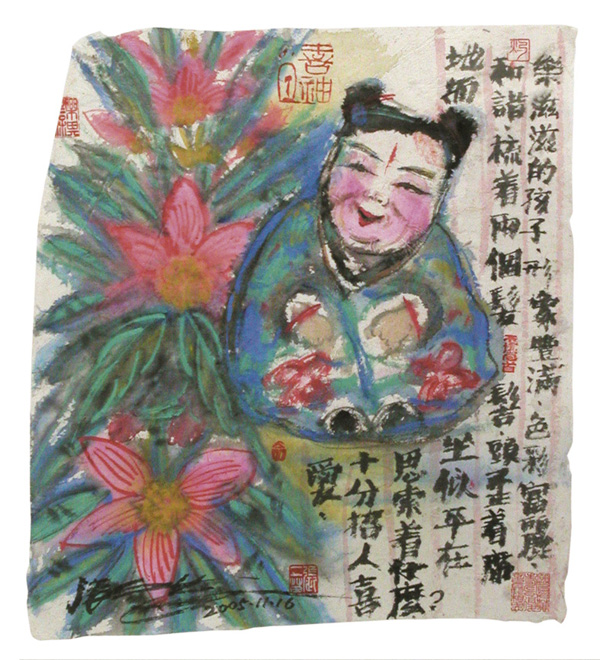 喜神
樂滋滋的孩子、形象豐滿、色彩富麗、
和諧、梳着兩個髮髻頭歪着席
地而坐似乎在
思索着什麼?
十分招人喜
愛、
2005-11-16